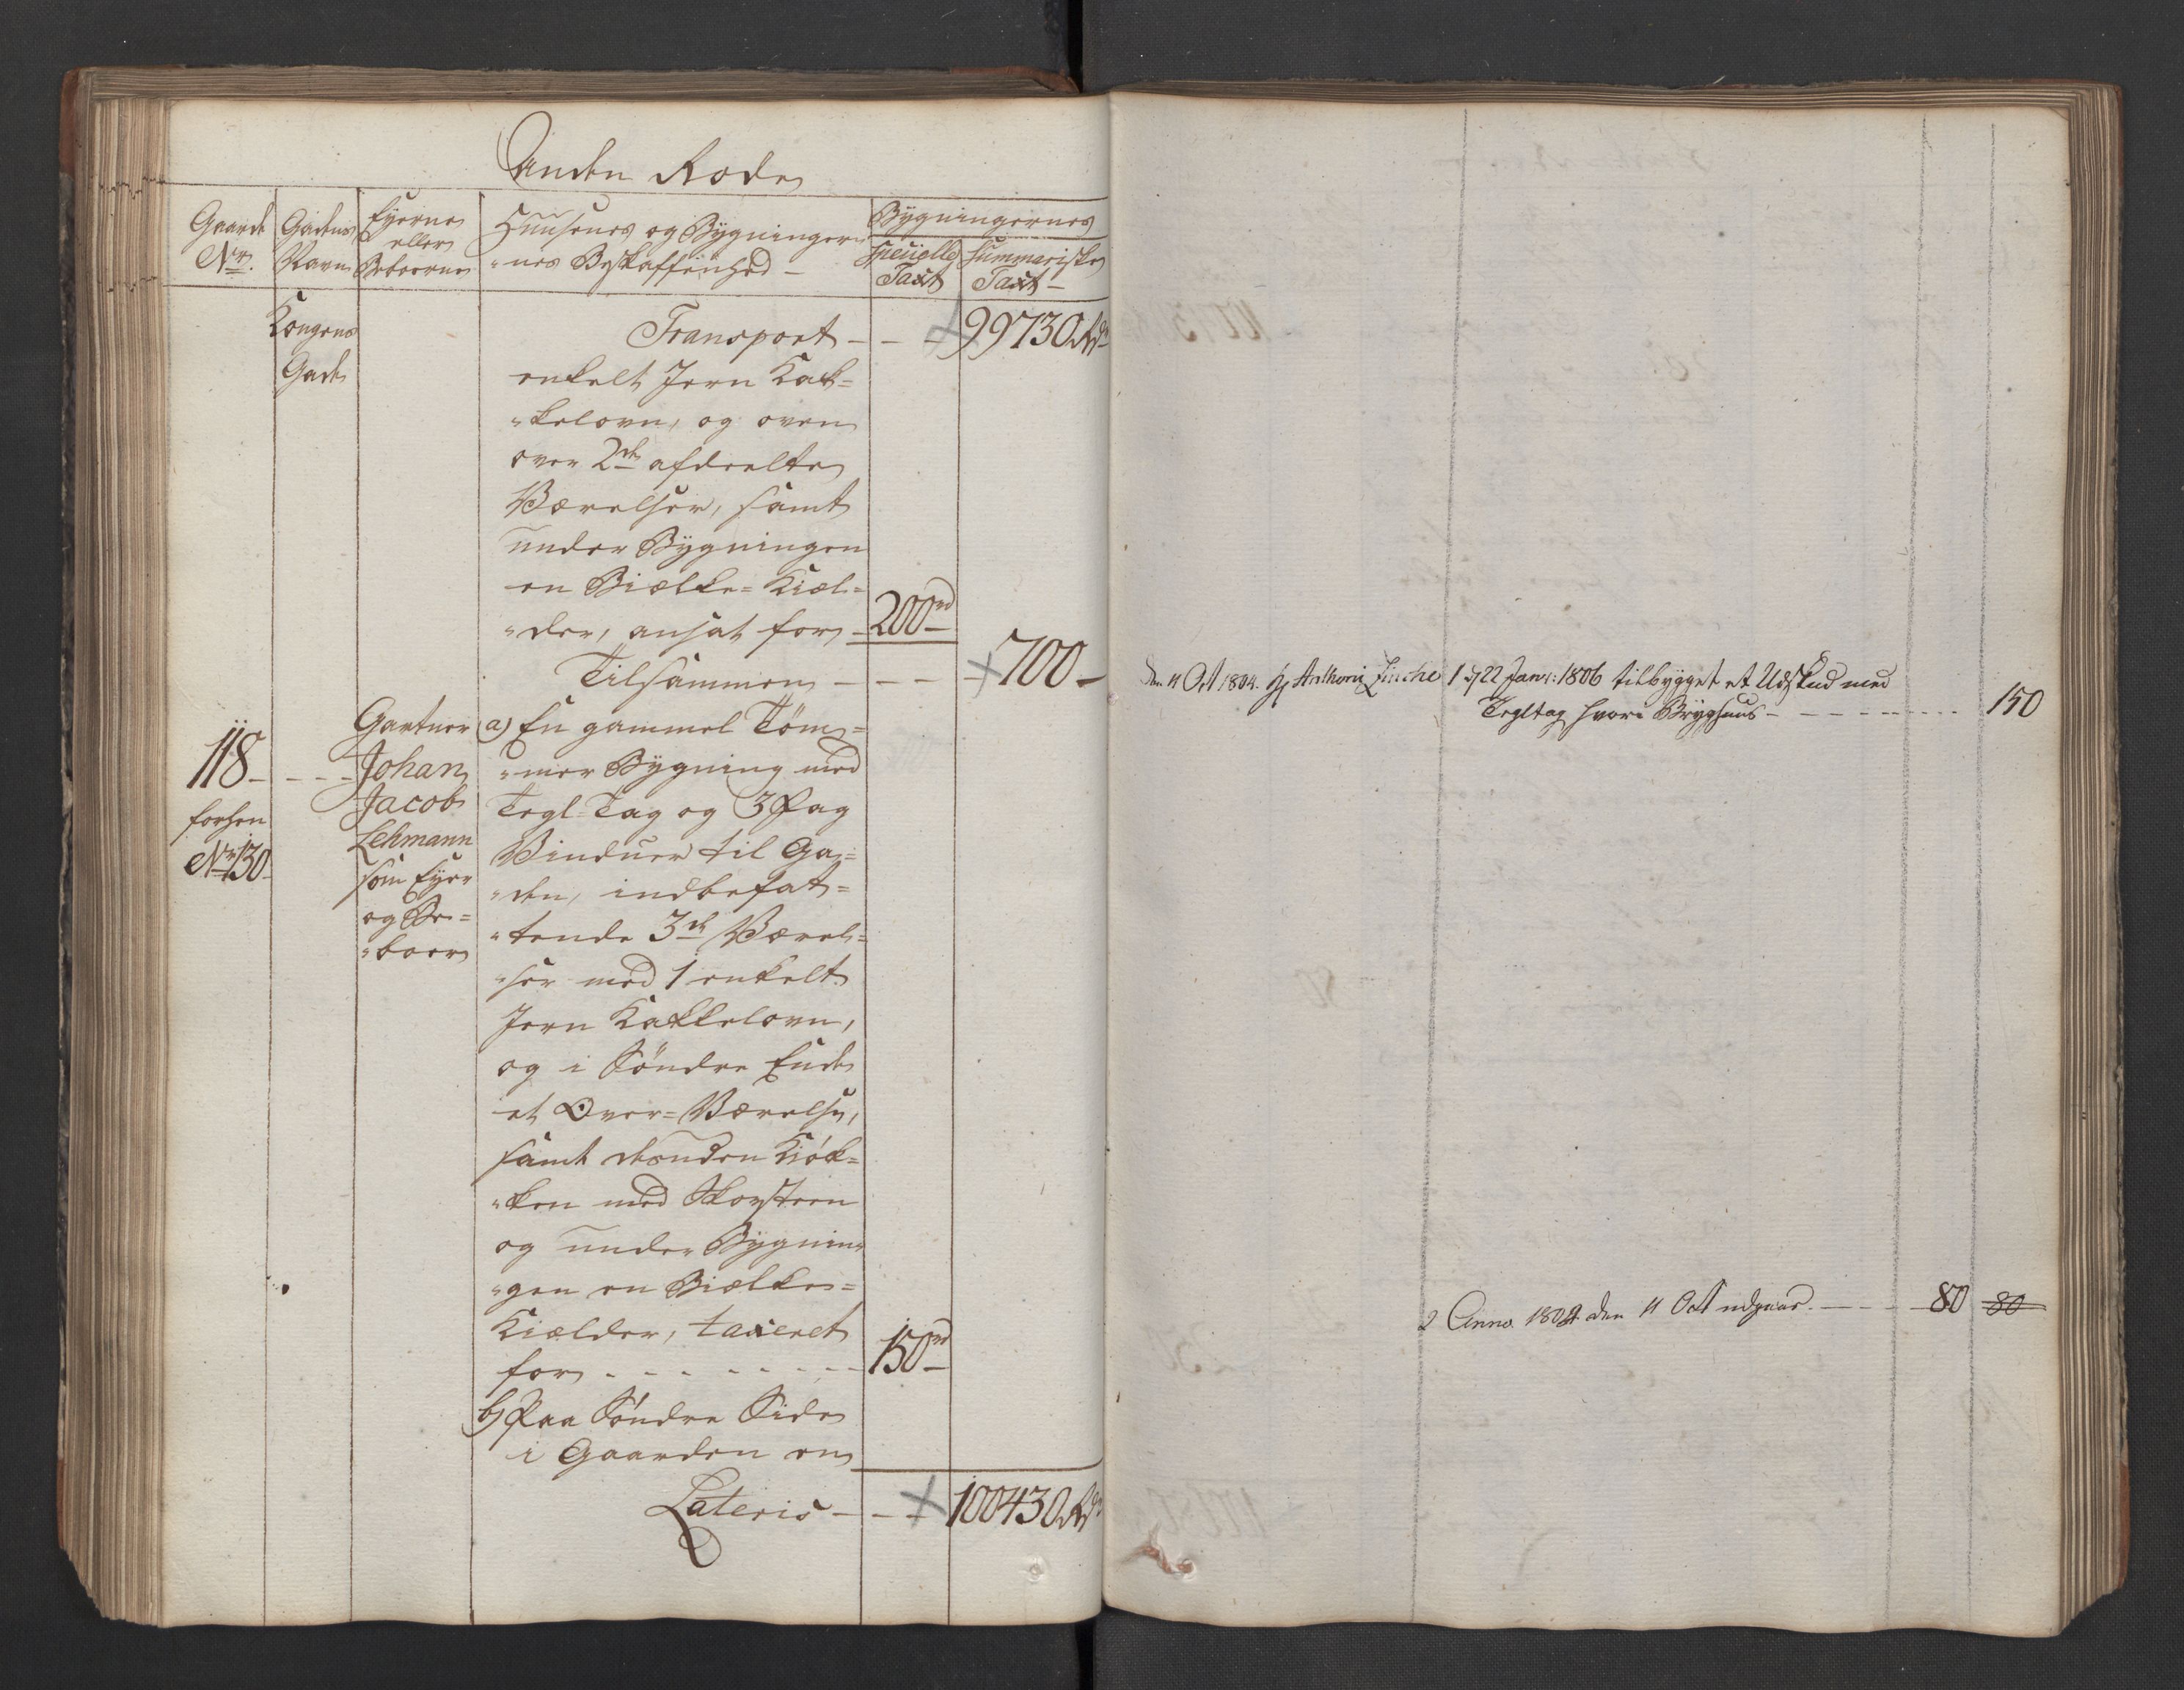 Anden Rode
Gaarde Gadens Eyerne Huusenes og Bygninger= Bygningernes
eller
No. Navn Beboerne "nes Beskaffenhed – Specielle Summariske
Taxt Taxt –
Kongens
Gade
Transport – – – 99730 Rdr
enkelt Jern Kak=
"kelovn, og oven
over 2de afdeelte
Værelser, samt
under Bygningen
en Bielke=Kiel=
"der, ansat for – 200rd –
Tilsammen – – – 700 –
118 – – – –
forhen
No 130
Gartner
Johan
Jacob
Lehmann
som Eyer
og Be=
"boer
a) En gammel Töm=
"mer Bygning med
Tegl=Tag og 3 Fag
Vinduer til Ga=
"den, indbefat=
"tende 3de Værel=
"ser med 1 enkelt
Jern Kakkelovn,
og i Söndre Ende
et Over=Værelse,
samt desuden Kiök=
"ken med Skorsteen
og under Bygnin=
"gen en Bielke=
Kielder, taxeret
for – – – – – – – 150rd –
b) Paa Söndre Side
i Gaarden en
Lateris – – – 100430 Rdr
den 11 Oct 1804. Anthoni 1 d 22 Janr: 1806 tilbygget et Udskud med
Tegltag hvori Bryghuus – – – – – – – 150
2 Anno 1804 den 11 Oct udgaar. – – – – 80 80